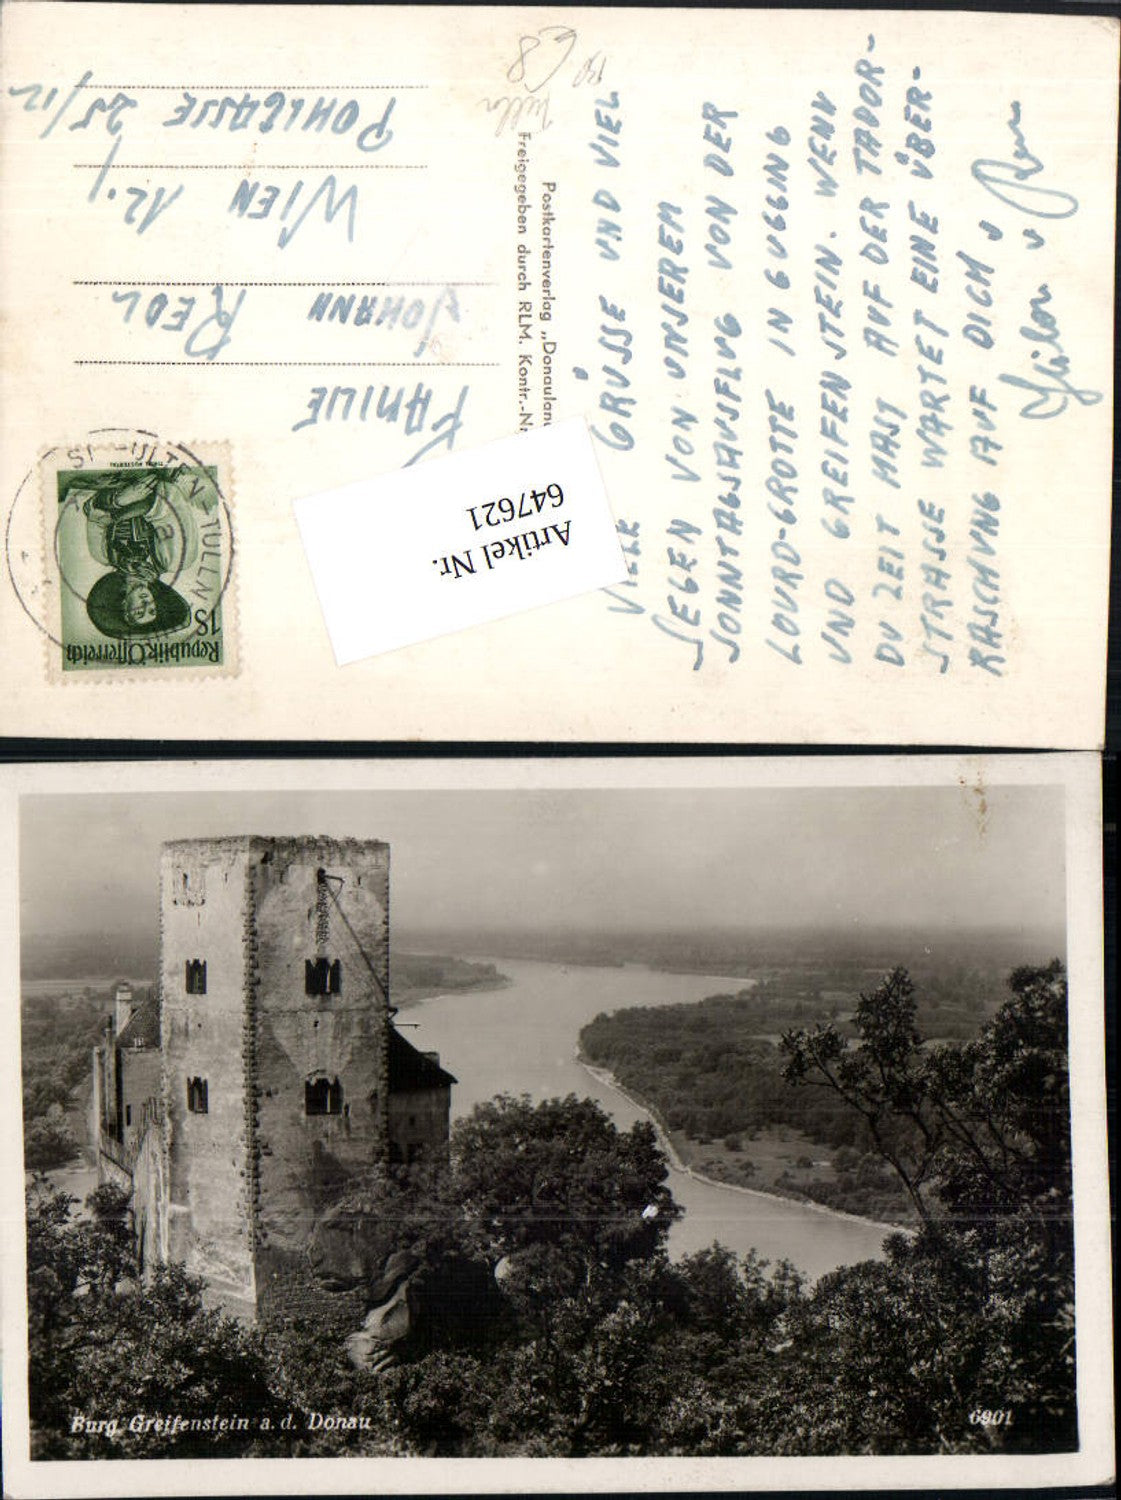 VIELE GRÜSSE UND VIEL
SEGEN VON UNSEREM
SONNTAGSAUSFLUG VON DER
LOURD-GROTTE IN GUGGING
UND GREIFENSTEIN. WENN
DU ZEIT HAST AUF DER TADOR-
STRASSE WARTET EINE ÜBER-
RASCHUNG AUF DICH
Postkartenverlag „Donaulan
Freigegeben durch RLM. Kontr.-Nr
FAMILIE
JOHANN REDL
WIEN 12.,
POHLGASSE 25/12
Republik Österreich
1S
ST PÖLTEN-TULLN
Artikel Nr.
647621
Burg Greifenstein a. d. Donau
6901